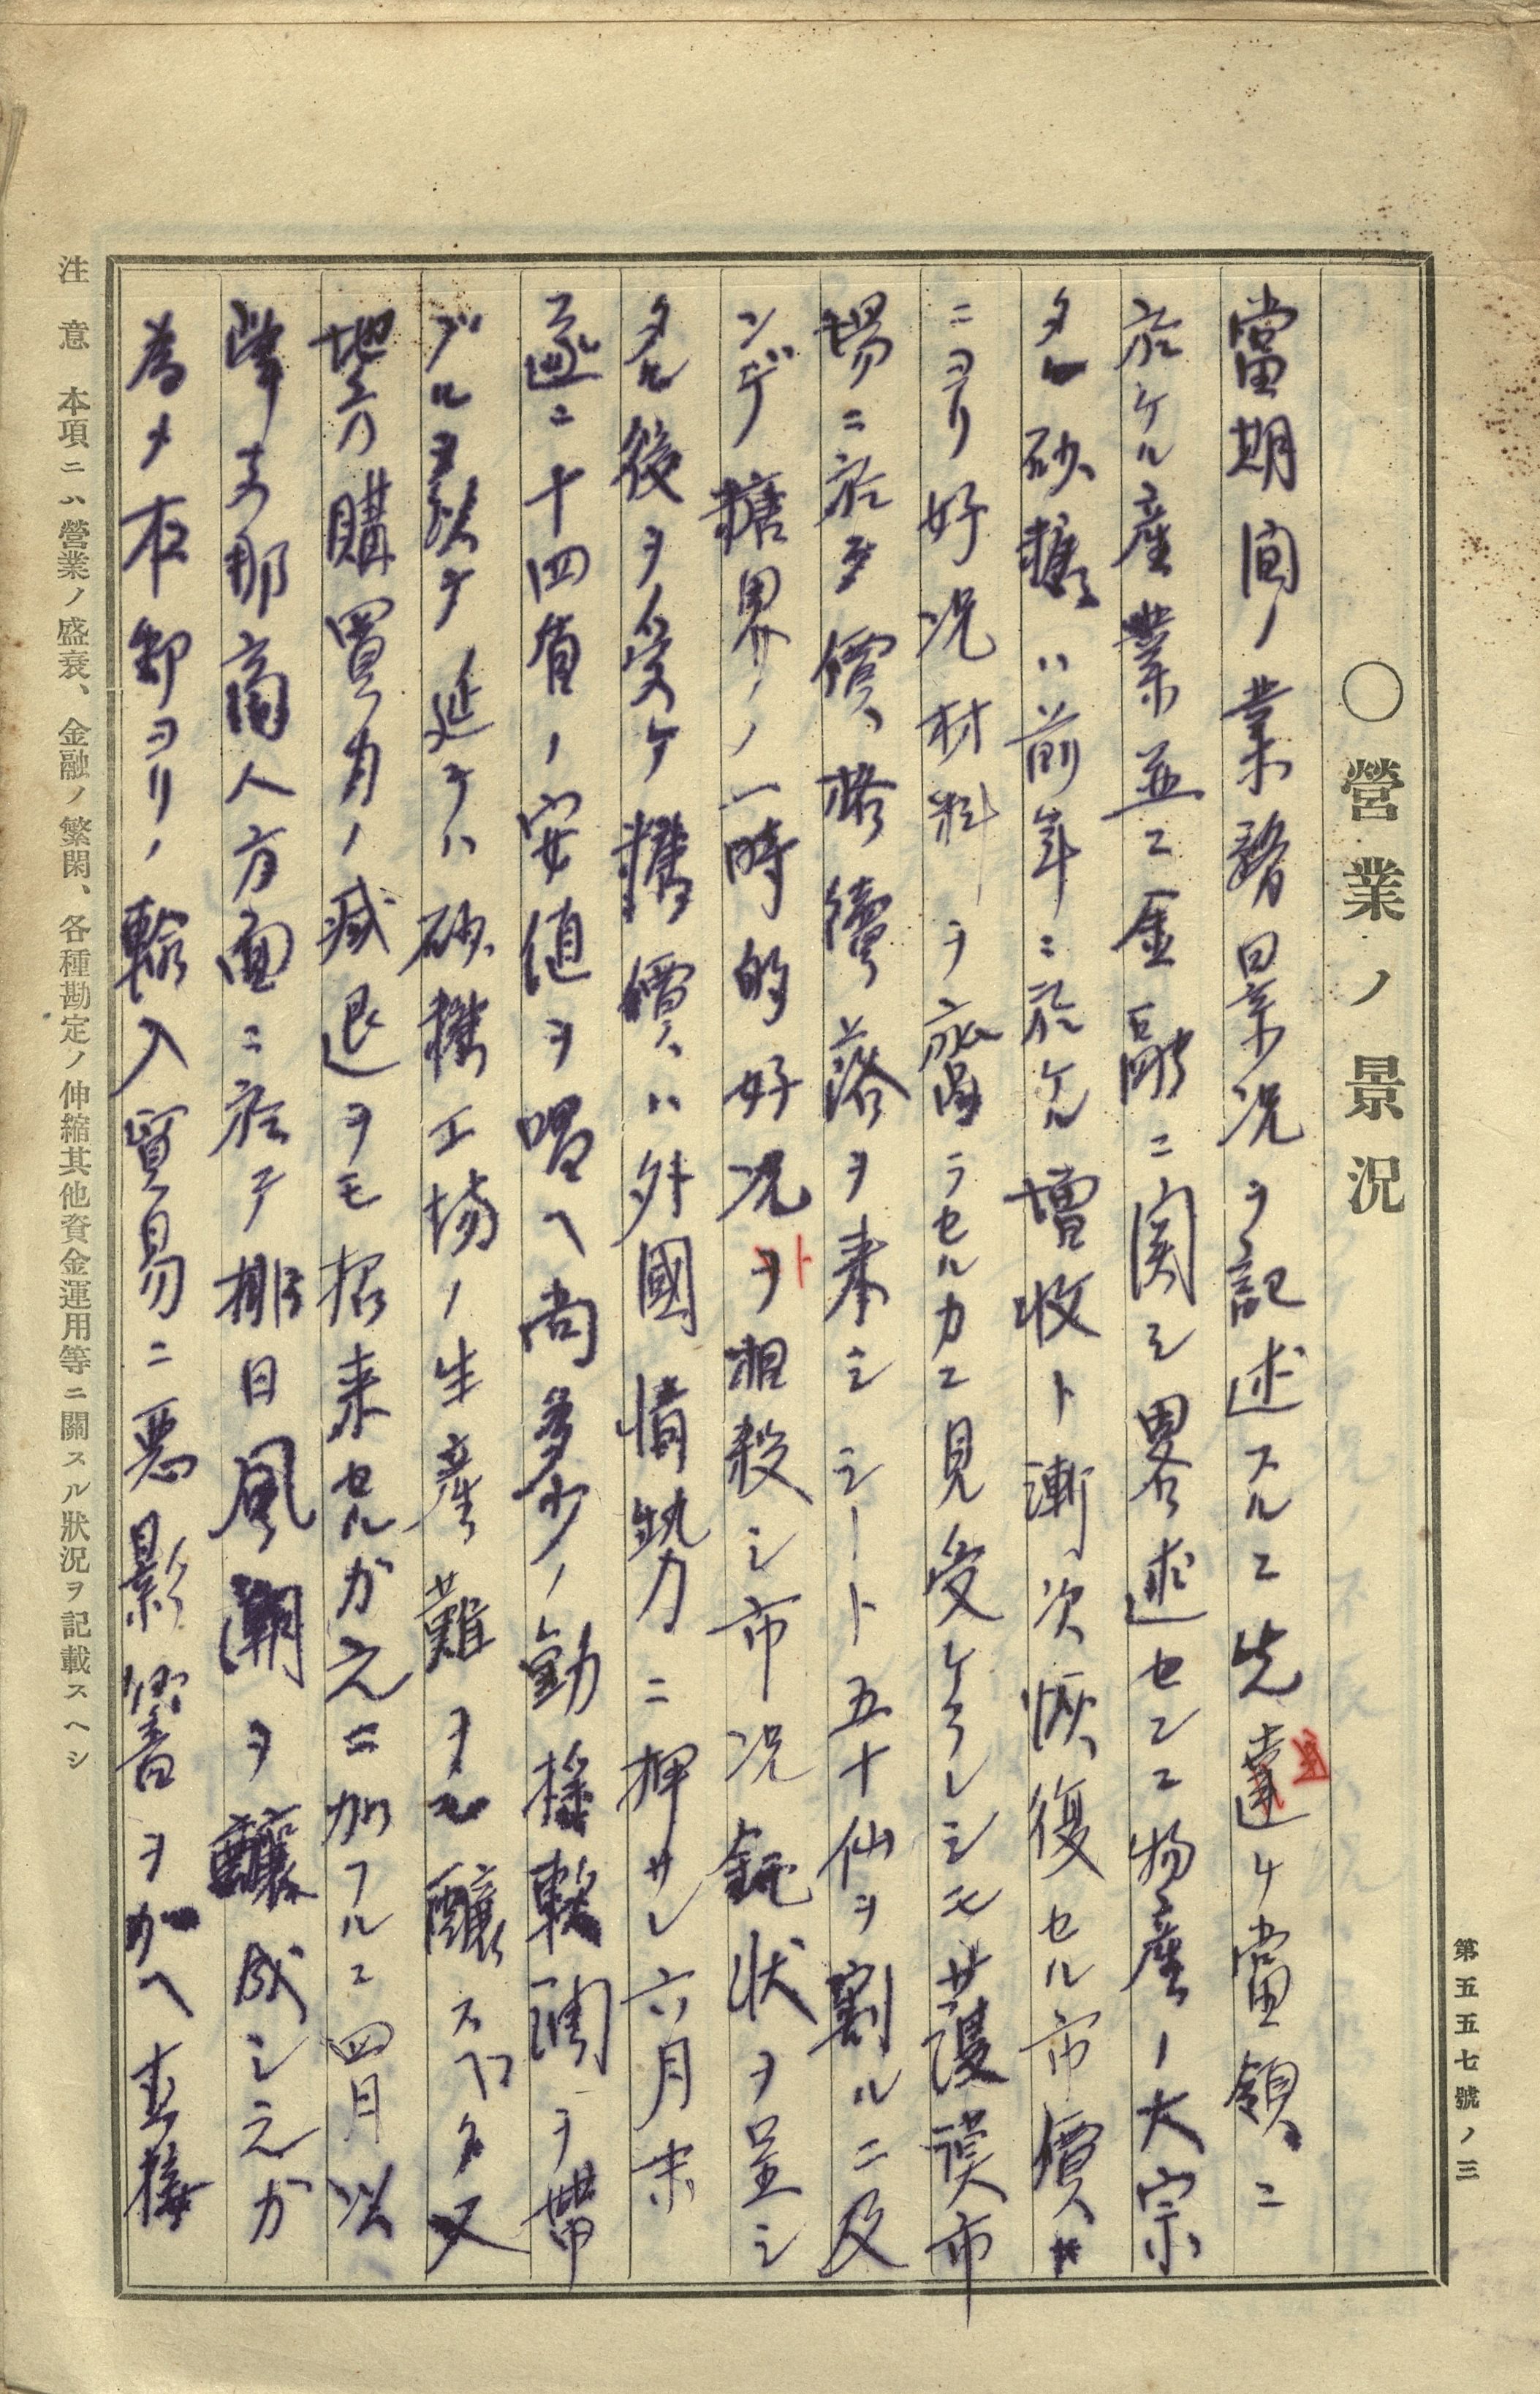 第五五七號ノ三
○營業ノ景況
當期間ノ業務景況ヲ記述スルニ先達ケ當領ニ
於ケル産業並ニ金融ニ関シ畧述センニ物産ノ大宗
タル砂糖ハ前年ニ於ケル増收ト漸次恢復セル市價ハ
ニヨリ好况材料ヲ齎ラセルカニ見受ケラレシモ護謨市
場ニ於テ價格續落ヲ来シシート五十仙ヲ割ルニ及
ンデ糖界ノ一時的好況ヲト相殺シ市况鈍状ヲ呈シ
タル後ヲ受ケ糖價ハ外國情勢ニ押サレ六月末
遂ニ十四盾ノ安値ヲ唱ヘ尚多少ノ動揺軟調ヲ帯
ブルヲ以テ延テハ砂糖工場ノ生産難ヲモ醸スベク又
地方購買力ノ減退ヲモ招来セルガ之ニ加フルニ四月以
降支那商人方面ニ於テ排日風潮ヲ醸成シ之ガ
為メ本邦ヨリノ輸入貿易ニ悪影響ヲ加ヘ直接
注意 本項ニハ營業ノ盛衰、金融ノ繁閑、各種勘定ノ伸縮其他資金運用等ニ關スル狀況ヲ記載スヘシ